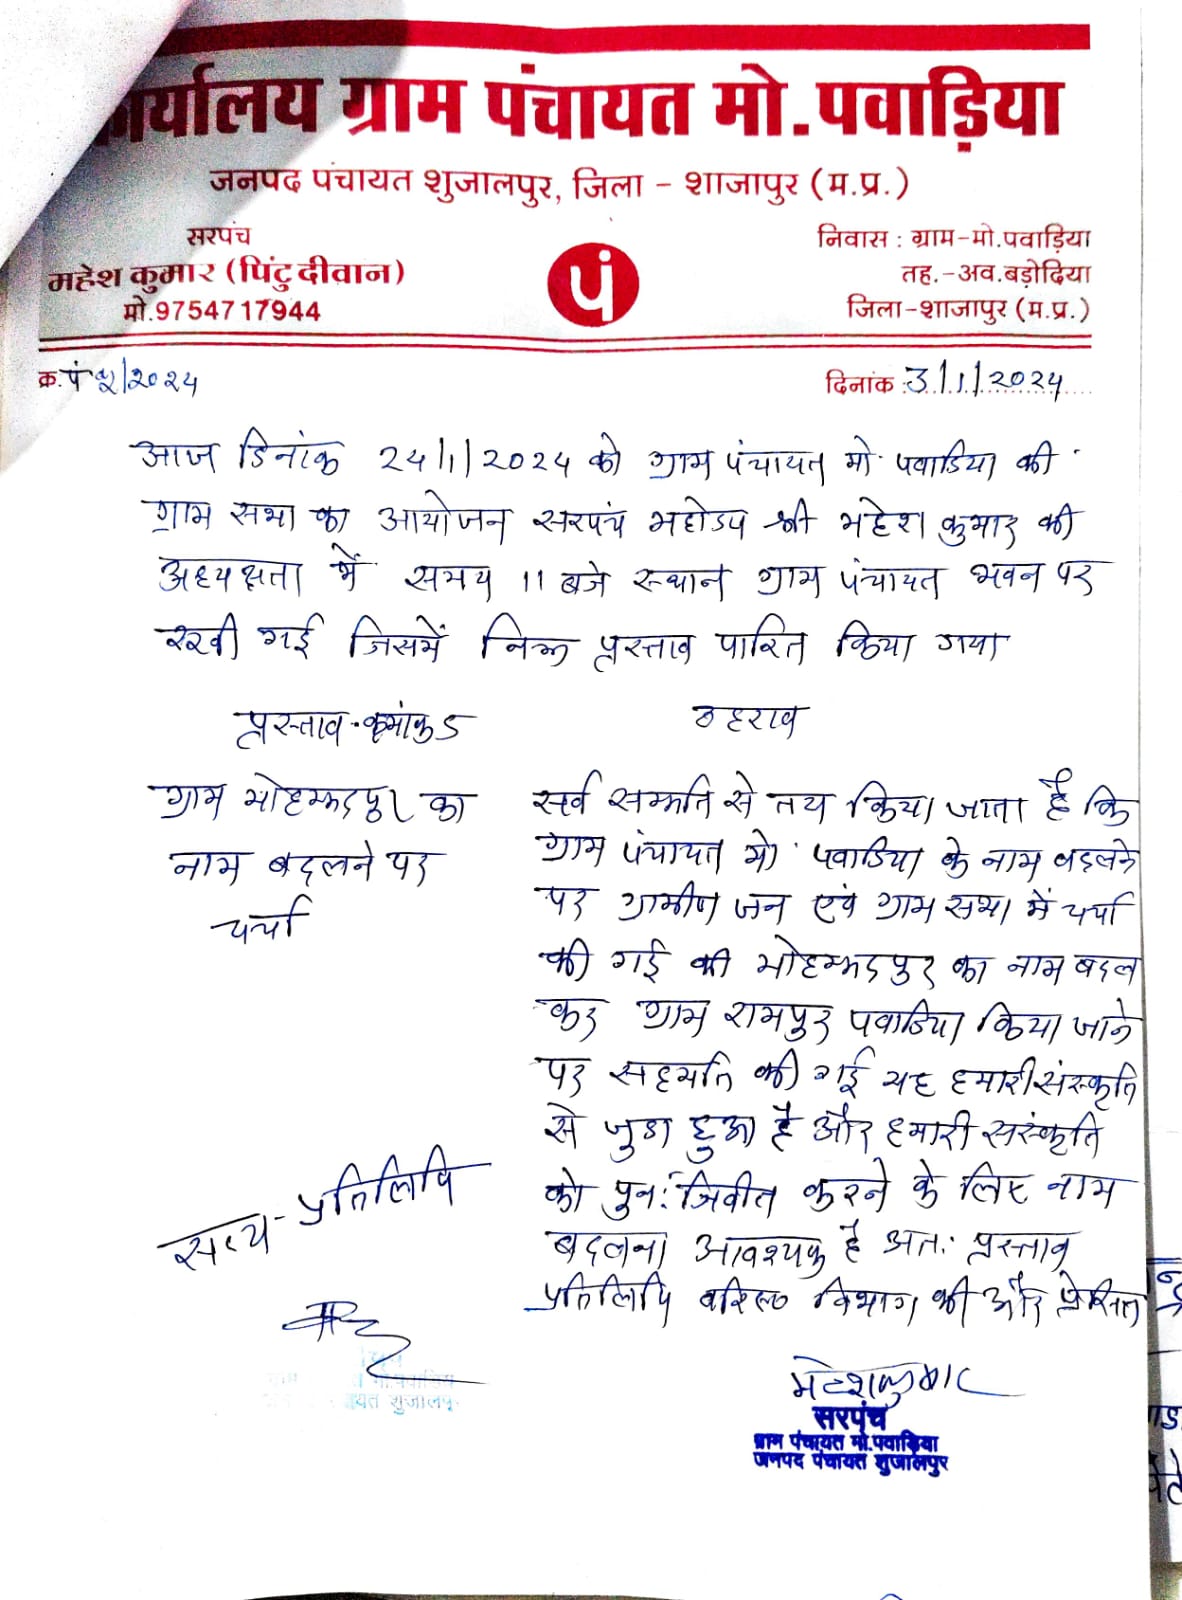 कार्यालय ग्राम पंचायत मो.पवाड़िया
जनपद पंचायत शुजालपुर, जिला - शाजापुर (म.प्र.)
सरपंच
महेश कुमार (पिंटु दीवान)
मो.9754717944
पं
निवास : ग्राम-मो.पवाड़िया
तह.-अव.बड़ोदिया
जिला-शाजापुर (म.प्र.)
क्र. पं /2024
दिनांक 3/1/2024
आज दिनांक 24/1/2024 को ग्राम पंचायत मो. पवाडिया की
ग्राम सभा का आयोजन सरपंच महोदय श्री महेश कुमार की
अध्यक्षता में समय 11 बजे स्थान ग्राम पंचायत भवन पर
रखी गई जिसमें निम्न प्रस्ताव पारित किया गया
प्रस्ताव-क्रमांक 5
ठहराव
ग्राम मोहम्मदपुर का
नाम बदलने पर
चर्चा
सर्व सम्मति से तय किया जाता है कि
ग्राम पंचायत मो. पवाडिया के नाम बदलने
पर ग्रामीण जन एवं ग्राम सभा में चर्चा
की गई की मोहम्मदपुर का नाम बदल
कर ग्राम रामपुर पवाडिया किया जाने
पर सहमति की गई यह हमारी संस्कृति
से जुडा हुआ है और हमारी संस्कृति
को पुनः जिवीत करने के लिए नाम
बदलना आवश्यक है अतः प्रस्ताव
प्रतिलिपि वरिष्ठ विभाग की और प्रेषित
सत्य-प्रतिलिपि
मो.पवाडिया
पंचायत शुजालपुर
महेश कुमार
सरपंच
ग्राम पंचायत मो.पवाड़िया
जनपद पंचायत शुजालपुर